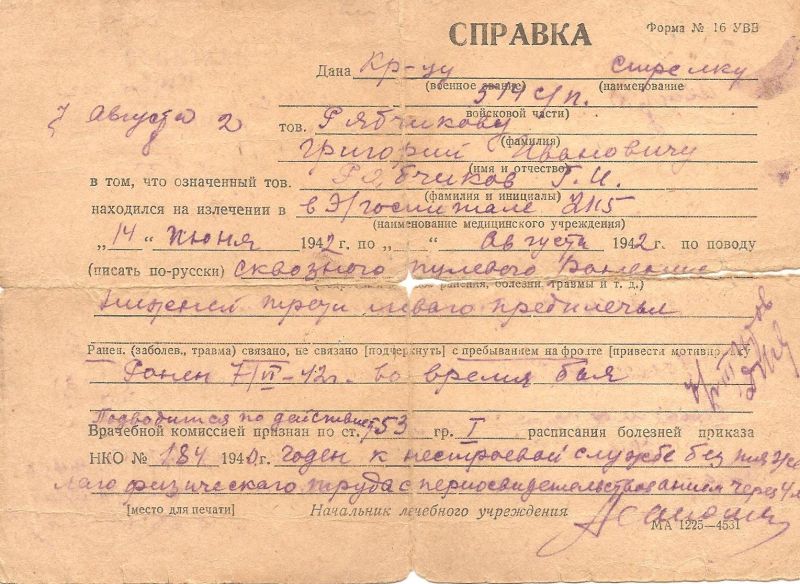 СПРАВКА
Форма № 16 УВВ
Дана Кр-цу стрелку
(военное звание) (наименование
514 с/п.
войсковой части)
7 Августа 2
тов. Рябчикову
(фамилия)
Григорий Ивановичу
(имя и отчество)
в том, что означенный тов. Рябчиков Г. И.
(фамилия и инициалы)
находился на излечении в Э/госпитале
(наименование медицинского учреждения)
„14“ июня 1942 г. по „ “ августа 1942 г. по поводу
(писать по-русски) сквозного пулевого ранения
ранения, болезни, травмы и т. д.)
нижней трети левого предплечья
Ранен. (заболев., травма) связано, не связано [подчеркнуть] с пребыванием на фронте [привести мотивир
Ранен 7/VI-42г. во время боя
Подводится по действие
Врачебной комиссией признан по ст. 53 гр. I расписания болезней приказа
НКО № 184 194 г. годен к нестроевой службе без тяже
лаго физическаго труда с переосвидетельствованием через
[место для печати] Начальник лечебного учреждения
МА 1225—4531